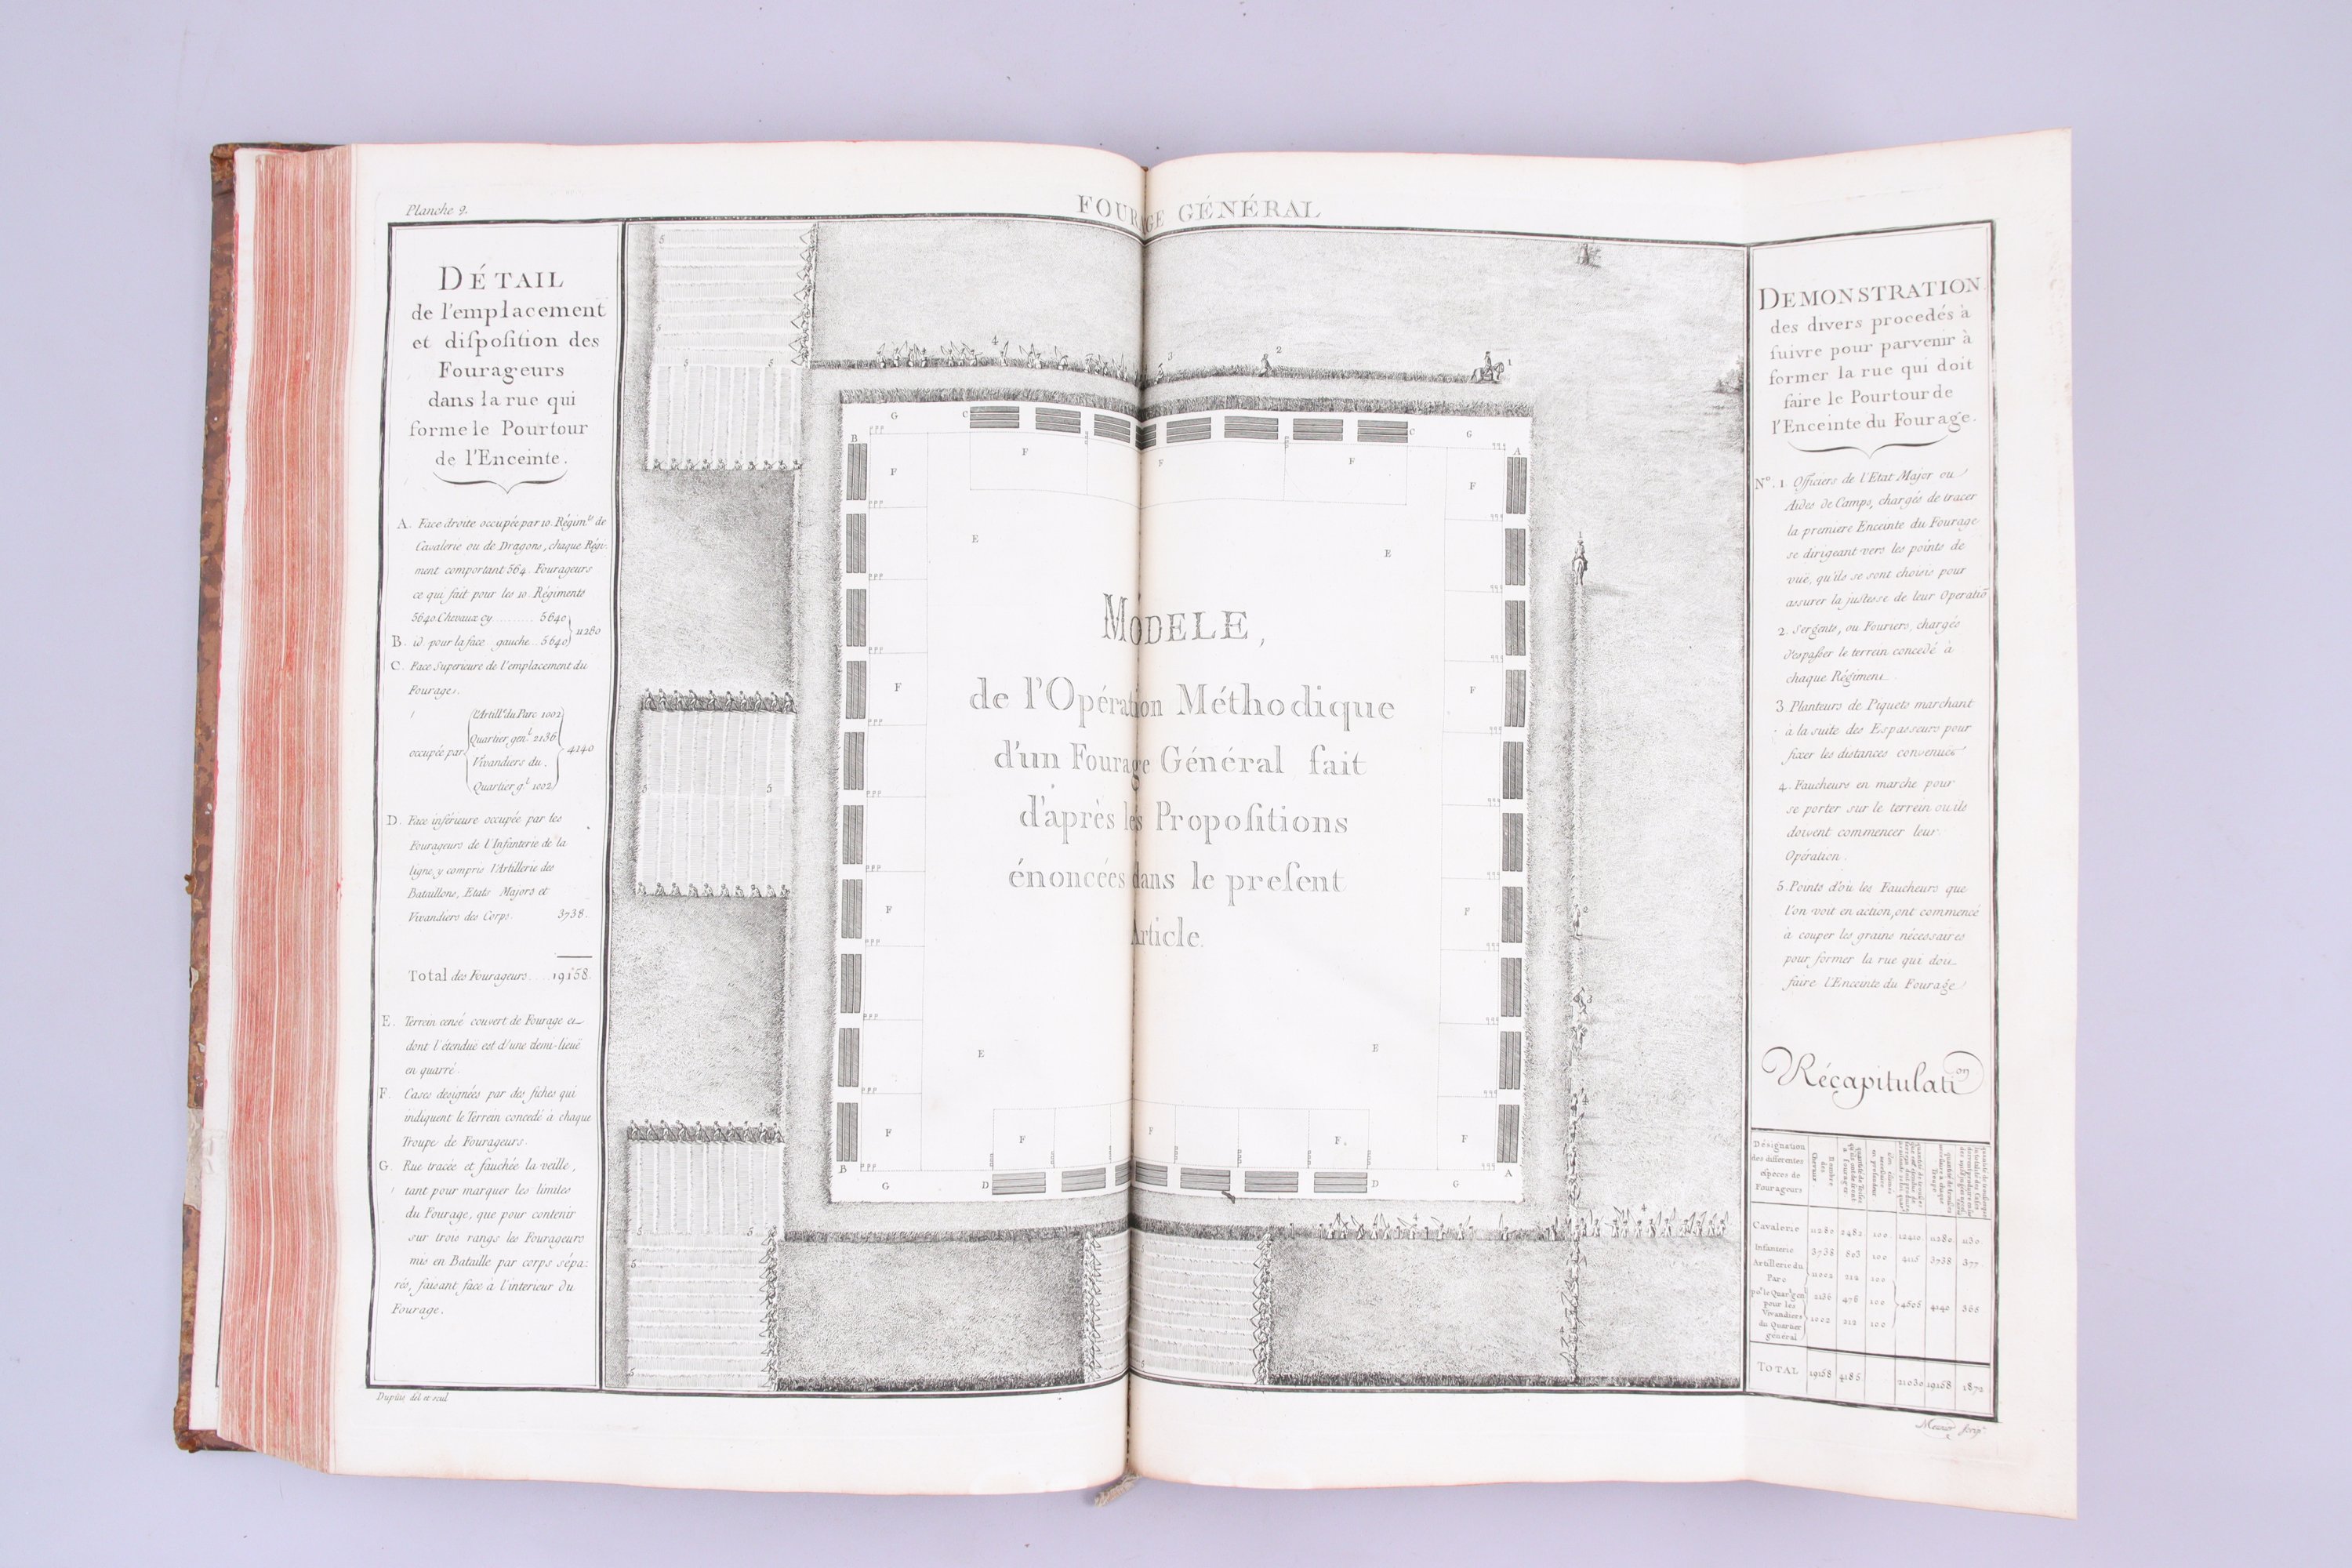 Planche 9.
FOURAGE GÉNÉRAL
DÉTAIL
de l'emplacement
et diſpoſition des
Fourageurs
dans la rue qui
forme le Pourtour
de l'Enceinte.
A. Face droite occupée par 10. Régim.ts de
Cavalerie ou de Dragons, chaque Régi-
ment comportant 564. Fourageurs
ce qui fait pour les 10. Régiments
5640 Chevaux cy ........ 5640
B. id. pour la face gauche .. 5640
11280
C. Face Superieure de l'emplacement du
Fourage.
occupée par
l'Artill.e du Parc 1002
Quartier gen.l 2136
Vivandiers du
Quartier g.l 1002
4140
D. Face inférieure occupée par les
Fourageurs de l'Infanterie de la
ligne, y compris l'Artillerie des
Bataillons, Etats Majors et
Vivandiers des Corps. 3738.
Total des Fourageurs .... 19158.
E. Terrein censé couvert de Fourage et
dont l'étendue est d'une demi-lieuë
en quarré.
F. Cases designées par des fiches qui
indiquent le Terrein concedé à chaque
Troupe de Fourageurs.
G. Rue tracée et fauchée la veille,
tant pour marquer les limites
du Fourage, que pour contenir
sur trois rangs les Fourageurs
mis en Bataille par corps sépa-
rés, faisant face à l'interieur du
Fourage.
MODELE,
de l'Opération Méthodique
d'un Fourage Général fait
d'après les Propoſitions
énoncées dans le preſent
Article.
DEMONSTRATION
des divers procedés à
ſuivre pour parvenir à
former la rue qui doit
faire le Pourtour de
l'Enceinte du Fourage.
N.o 1. Officiers de l'Etat Major ou
Aides de Camps, chargés de tracer
la premiere Enceinte du Fourage
se dirigeant vers les points de
vuë, qu'ils se sont choisis pour
assurer la justesse de leur Operatiō
2. Sergents, ou Fouriers, chargés
d'espaſser le terrein concedé à
chaque Régiment.
3. Planteurs de Piquets marchant
à la suite des Espasseurs pour
fixer les distances convenues
4. Faucheurs en marche pour
se porter sur le terrein ou ils
doivent commencer leur
Opération.
5. Points d'où les Faucheurs que
l'on voit en action, ont commencé
à couper les grains nécessaires
pour former la rue qui doit
faire l'Enceinte du Fourage
Récapitulation
Désignation
des différentes
eſpéces de
Fourageurs
Nombre
des
Chevaux
Cavalerie 11280 2482 100 12410 11280 1130
Infanterie 3738 803 100 4115 3738 377
Artillerie du
Parc 1002 212 100
po.r le Quar.r gen
2136 478 100 4505 4140 365
pour les
Vivandiers
du Quartier
général
1002 212 100
TOTAL 19158 4185 21030 19158 1872
Dupuis, del et scul